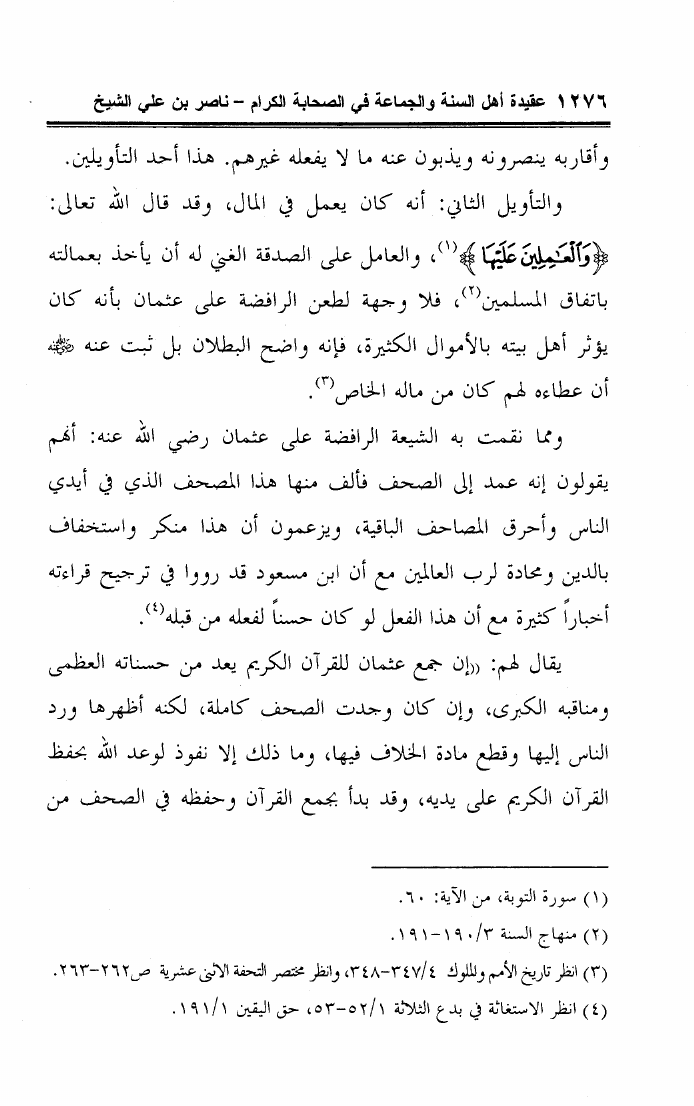 ١٢٧٦ عقيدة أهل السنة والجماعة في الصحابة الكرام – ناصر بن علي الشيخ
وأقاربه ينصرونه ويذبون عنه ما لا يفعله غيرهم. هذا أحد التأويلين.
والتأويل الثاني: أنه كان يعمل في المال، وقد قال الله تعالى:
﴿وَٱلْعَٰمِلِينَ عَلَيْهَا﴾(١)، والعامل على الصدقة الغني له أن يأخذ بعمالته
باتفاق المسلمين(٢)، فلا وجهة لطعن الرافضة على عثمان بأنه كان
يؤثر أهل بيته بالأموال الكثيرة، فإنه واضح البطلان بل ثبت عنه رضي الله عنه
أن عطاءه لهم كان من ماله الخاص(٣).
ومما نقمت به الشيعة الرافضة على عثمان رضي الله عنه: أنهم
يقولون إنه عمد إلى الصحف فألف منها هذا المصحف الذي في أيدي
الناس وأحرق المصاحف الباقية، ويزعمون أن هذا منكر واستخفاف
بالدين ومحادة لرب العالمين مع أن ابن مسعود قد رووا في ترجيح قراءته
أخباراً كثيرة مع أن هذا الفعل لو كان حسناً لفعله من قبله(٤).
يقال لهم: ((إن جمع عثمان للقرآن الكريم يعد من حسناته العظمى
ومناقبه الكبرى، وإن كان وجدت الصحف كاملة، لكنه أظهرها ورد
الناس إليها وقطع مادة الخلاف فيها، وما ذلك إلا نفوذ لوعد الله بحفظ
القرآن الكريم على يديه، وقد بدأ بجمع القرآن وحفظه في الصحف من
(١) سورة التوبة، من الآية: ٦٠.
(٢) منهاج السنة ١٩٠/٣–١٩١.
(٣) انظر تاريخ الأمم والملوك ٣٤٧/٤–٣٤٨، وانظر مختصر التحفة الاثنى عشرية ص٢٦٢–٢٦٣.
(٤) انظر الاستغاثة في بدع الثلاثة ٥٢/١–٥٣، حق اليقين ١٩١/١.